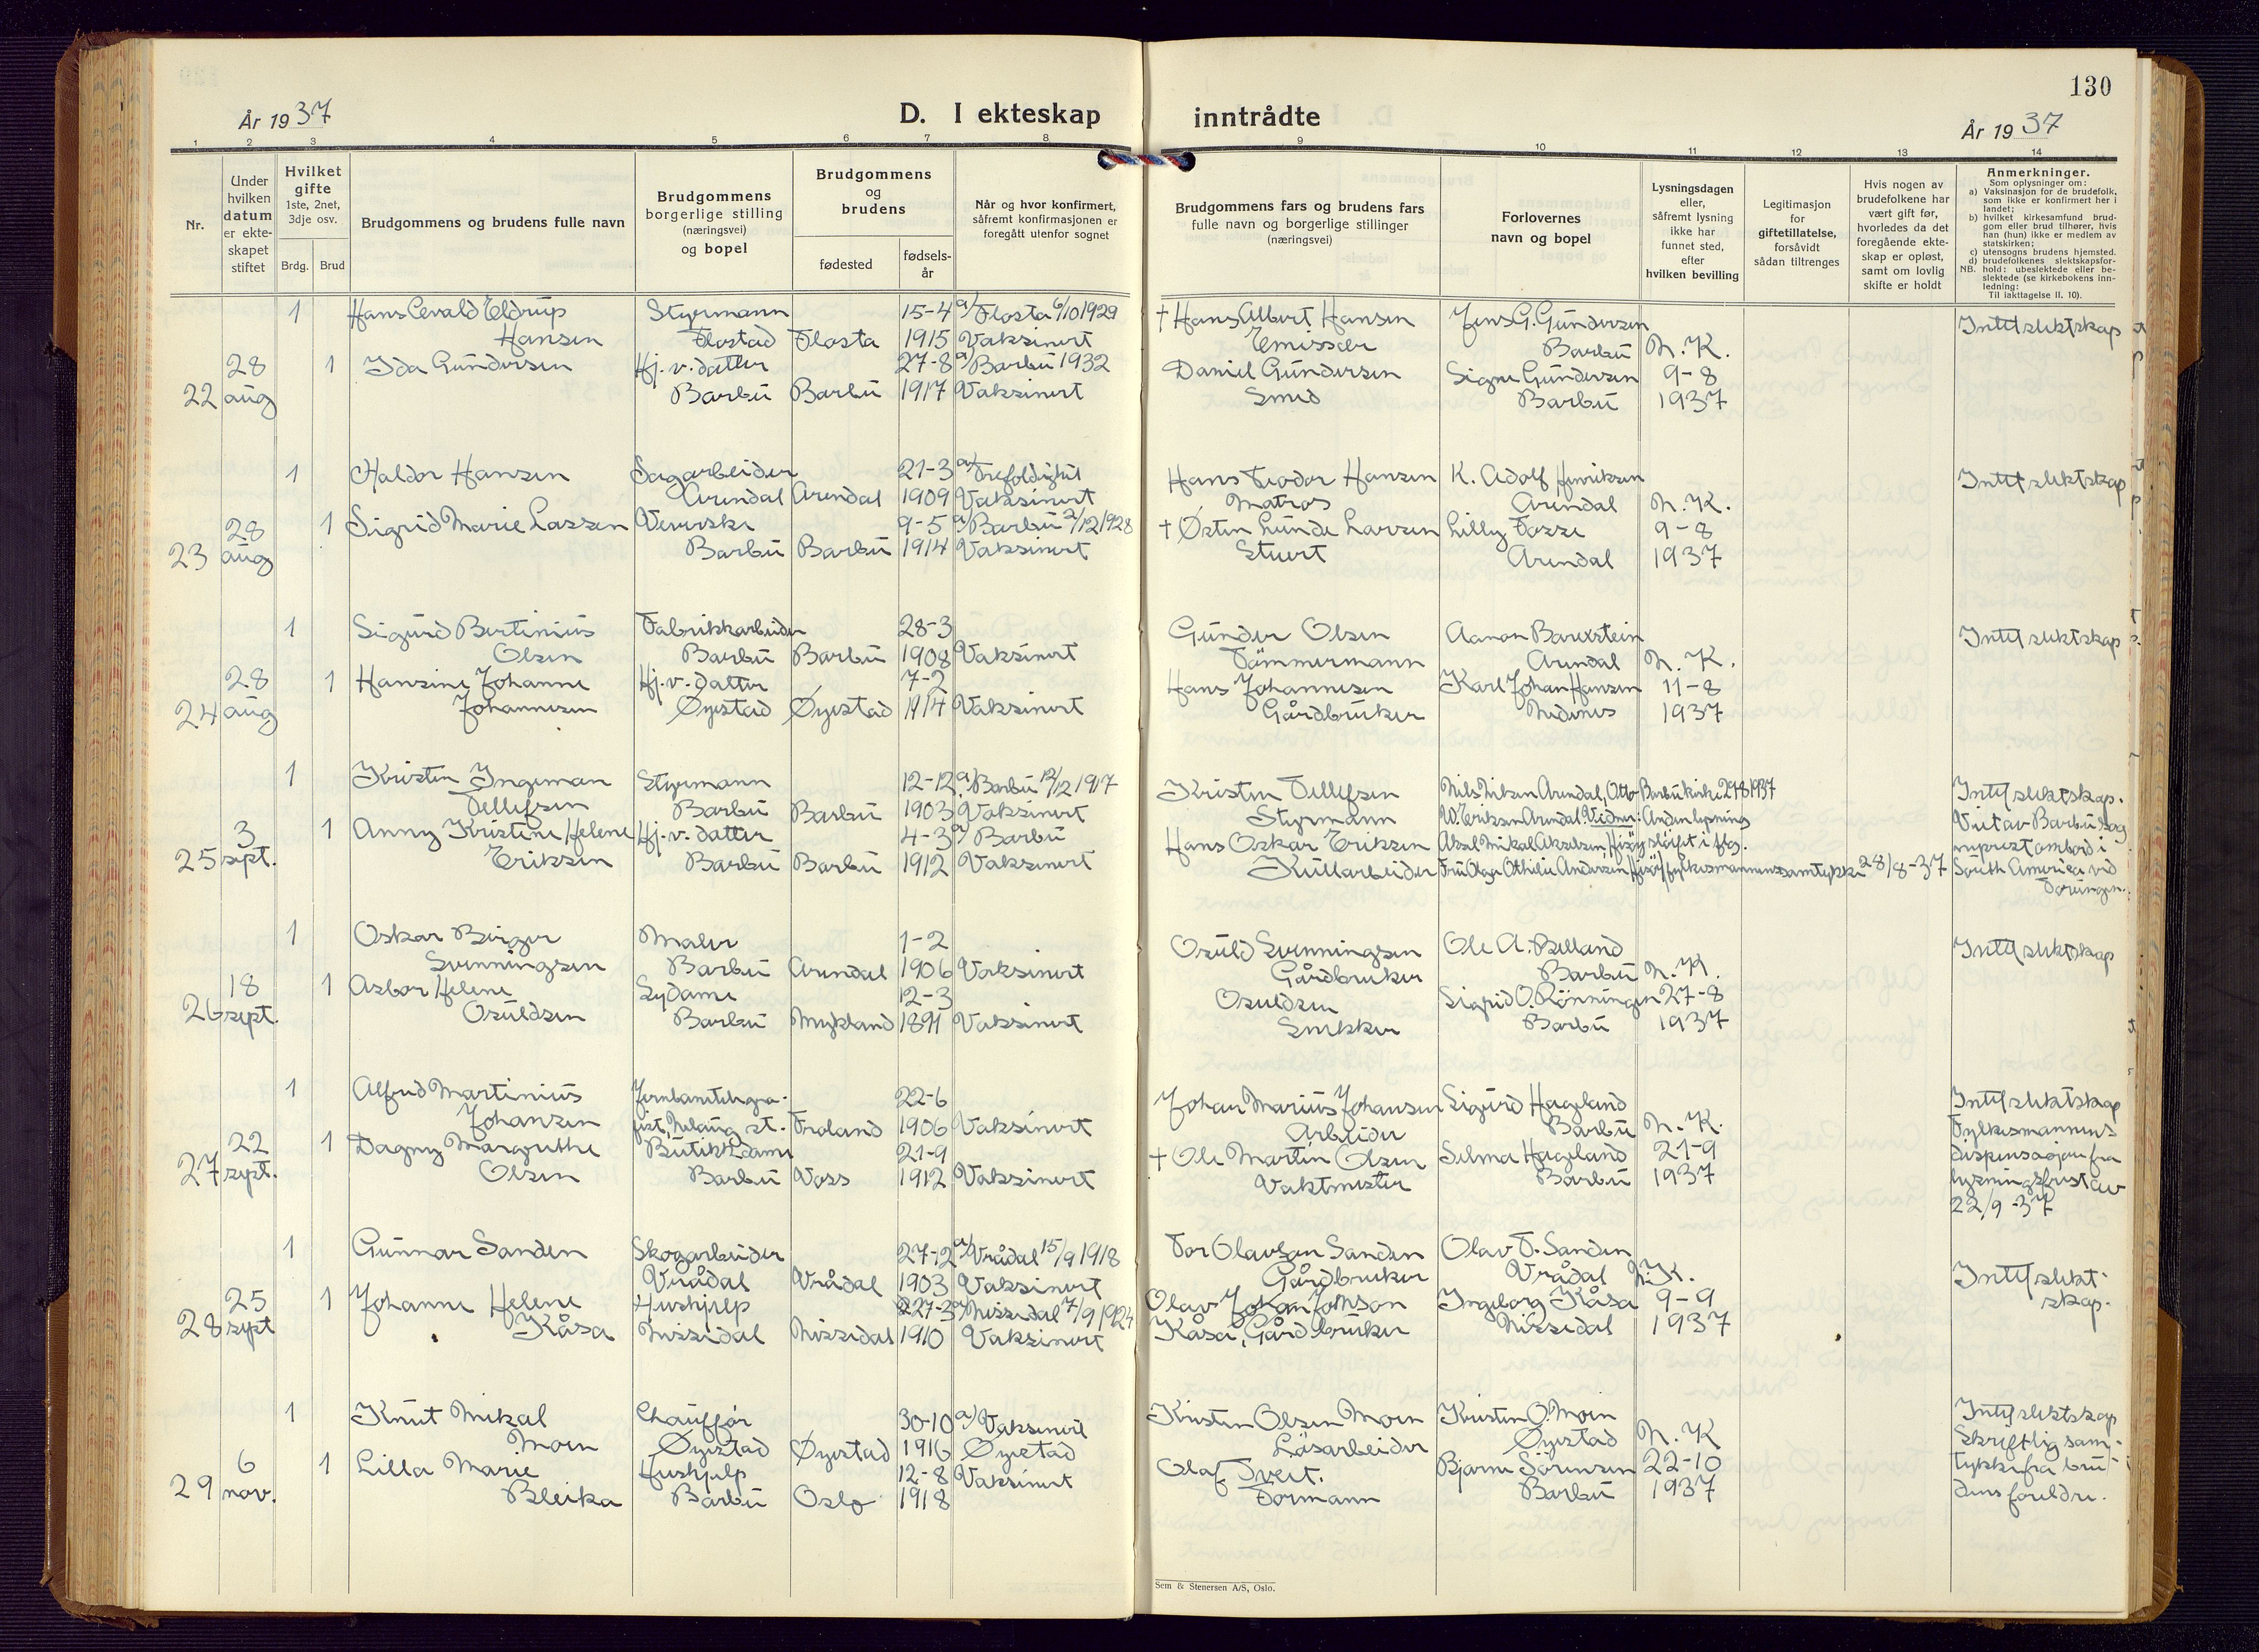 130
År 1937
D. I ekteskap
inntrådte
År 1937
1 2 3 4 5 6 7 8 9 10 11 12 13 14
Nr.
Under
hvilken
datum
er ekte-
skapet
stiftet
Hvilket
gifte
1ste, 2net,
3dje osv.
Brdg. Brud
Brudgommens og brudens fulle navn
Brudgommens
borgerlige stilling
(næringsvei)
og bopel
Brudgommens
og
brudens
fødested
fødsels-
år
Når og hvor konfirmert,
såfremt konfirmasjonen er
foregått utenfor sognet
Brudgommens fars og brudens fars
fulle navn og borgerlige stillinger
(næringsvei)
Forlovernes
navn og bopel
Lysningsdagen
eller,
såfremt lysning
ikke har
funnet sted,
efter
hvilken bevilling
Legitimasjon
for
giftetillatelse,
forsåvidt
sådan tiltrenges
Hvis nogen av
brudefolkene har
vært gift før,
hvorledes da det
foregående ekte-
skap er opløst,
samt om lovlig
skifte er holdt
Anmerkninger.
Som oplysninger om:
a) Vaksinasjon for de brudefolk,
som ikke er konfirmert her i
landet;
b) hvilket kirkesamfund brud-
gom eller brud tilhører, hvis
han (hun) ikke er medlem av
statskirken;
c) utensogns brudens hjemsted.
d) brudefolkenes slektskapsfor-
NB. hold: ubeslektede eller be-
slektede (se kirkebokens inn-
ledning:
Til iakttagelse II. 10).
1 Hans Evald Eldrup Styrmann 15-4 a/ Flosta 6/10 1929 † Hans Albert Hansen Jens G. Gundersen Intet slektskap
Hansen Flostad Flosta 1915 Vaksinert Emissær Barbu N.K.
28 1 Ida Gundersen Hj.v.datter 27-8 a/ Barbu 1932 Daniel Gundersen Signe Gundersen 9-8
22 aug Barbu Barbu 1917 Vaksinert Smed Barbu 1937
1 Haldor Hansen Sagarbeider 21-3 a/ Trefoldighet Hans Teodor Hansen K. Adolf Henriksen Intet slektskap
Arendal Arendal 1909 Vaksinert Matros Arendal N.K.
28 1 Sigrid Marie Larsen Veverske 9-5 a/ Barbu 2/12 1928 † Østen Lunde Larsen Lilly Fosse 9-8
23 aug Barbu Barbu 1914 Vaksinert Stuert Arendal 1937
1 Sigurd Bertinius Fabrikkarbeider 28-3 Gunder Olsen Aanon Barexstein Intet slektskap
Olsen Barbu Barbu 1908 Vaksinert Tømmermann Arendal N.K.
28 1 Hansine Johanne Hj.v.datter 7-2 Hans Johannesen Karl Johan Hansen 11-8
24 aug Johannesen Øyestad Øyestad 1914 Vaksinert Gårdbruker Nedenes 1937
1 Kristen Ingeman Styrmann 12-12 a/ Barbu 12/12 1917 Kristen Tellefsen Nils Nilsen Arendal, Otto Barbu kirke 29/8 1937 Intet slektskap.
Tellefsen Barbu Barbu 1903 Vaksinert Styrmann W. Eriksen Arendal. Viduer: Anden lysning Viet av Barbu sog
3 1 Anny Kristine Helene Hj.v.datter 4-3 a/ Barbu Hans Oskar Eriksen Aksel Mikal Akselsen, Hisøy sløyfet i flg. neprest ombord i
25 sept. Eriksen Barbu Barbu 1912 Vaksinert Kullarbeider Fru Olaga Othilie Andersen, Hisøy fylkesmannens samtykke 28/8-37 South America ved
Torungen.
1 Oskar Birger Maler 1-2 Osuld Svenningsen Ole A. Belland Intet slektskap
Svenningsen Barbu Arendal 1906 Vaksinert Gårdbruker Barbu N.K.
18 1 Asbor Helene Sydame 12-3 Osuldsen Sigrid O. Rønningen 27-8
26 sept. Osuldsen Barbu Mykland 1891 Vaksinert Snekker Barbu 1937
1 Alfred Martinius Jernbanetelegra- 22-6 Johan Marius Johansen Sigurd Hagland Intet slektskap
Johansen fist, Nelaug st. Froland 1906 Vaksinert Arbeider Barbu N.K. Fylkesmannens
22 1 Dagny Margrethe Butikkdame 21-9 † Ole Martin Olsen Selma Hagland 21-9 dispensasjon fra
27 sept. Olsen Barbu Voss 1912 Vaksinert Vaktmester Barbu 1937 lysningsfrist av
22/9-37
1 Gunnar Sanden Skogarbeider 27-12 a/ Vrådal 15/9 1918 Tor Olavson Sanden Olav T. Sanden
Vrådal Vrådal 1903 Vaksinert Gårdbruker Vrådal N.K. Intet slekt-
25 1 Johanne Helene Hushjelp 27-3 a/ Nissedal 7/9 1924 Olav Johan Johnson Ingeborg Kåsa 9-9 skap.
28 sept Kåsa Nissedal Nissedal 1910 Vaksinert Kåsa, Gårdbruker Nissedal 1937
1 Knut Mikal Chauffør 30-10 a/ Vaksinert Kristen Olsen Moen Kristen O. Moen Intet slektskap
Moen Øyestad Øyestad 1916 Øyestad Løsarbeider Øyestad N.K Skriftlig sam-
6 1 Lilla Marie Hushjelp 12-8 Vaksinert Olaf Tveit. Bjarne Sørensen 22-10 tykke fra bru-
29 nov. Bleika Barbu Oslo 1918 Formann Barbu 1937 dens foreldre.
Sem & Stenersen A/S, Oslo.